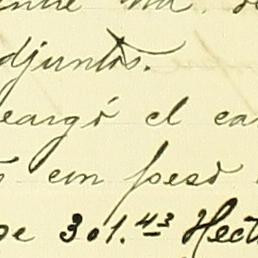 djuntos.
eargó el ca
con peso
de 301.43 Hect